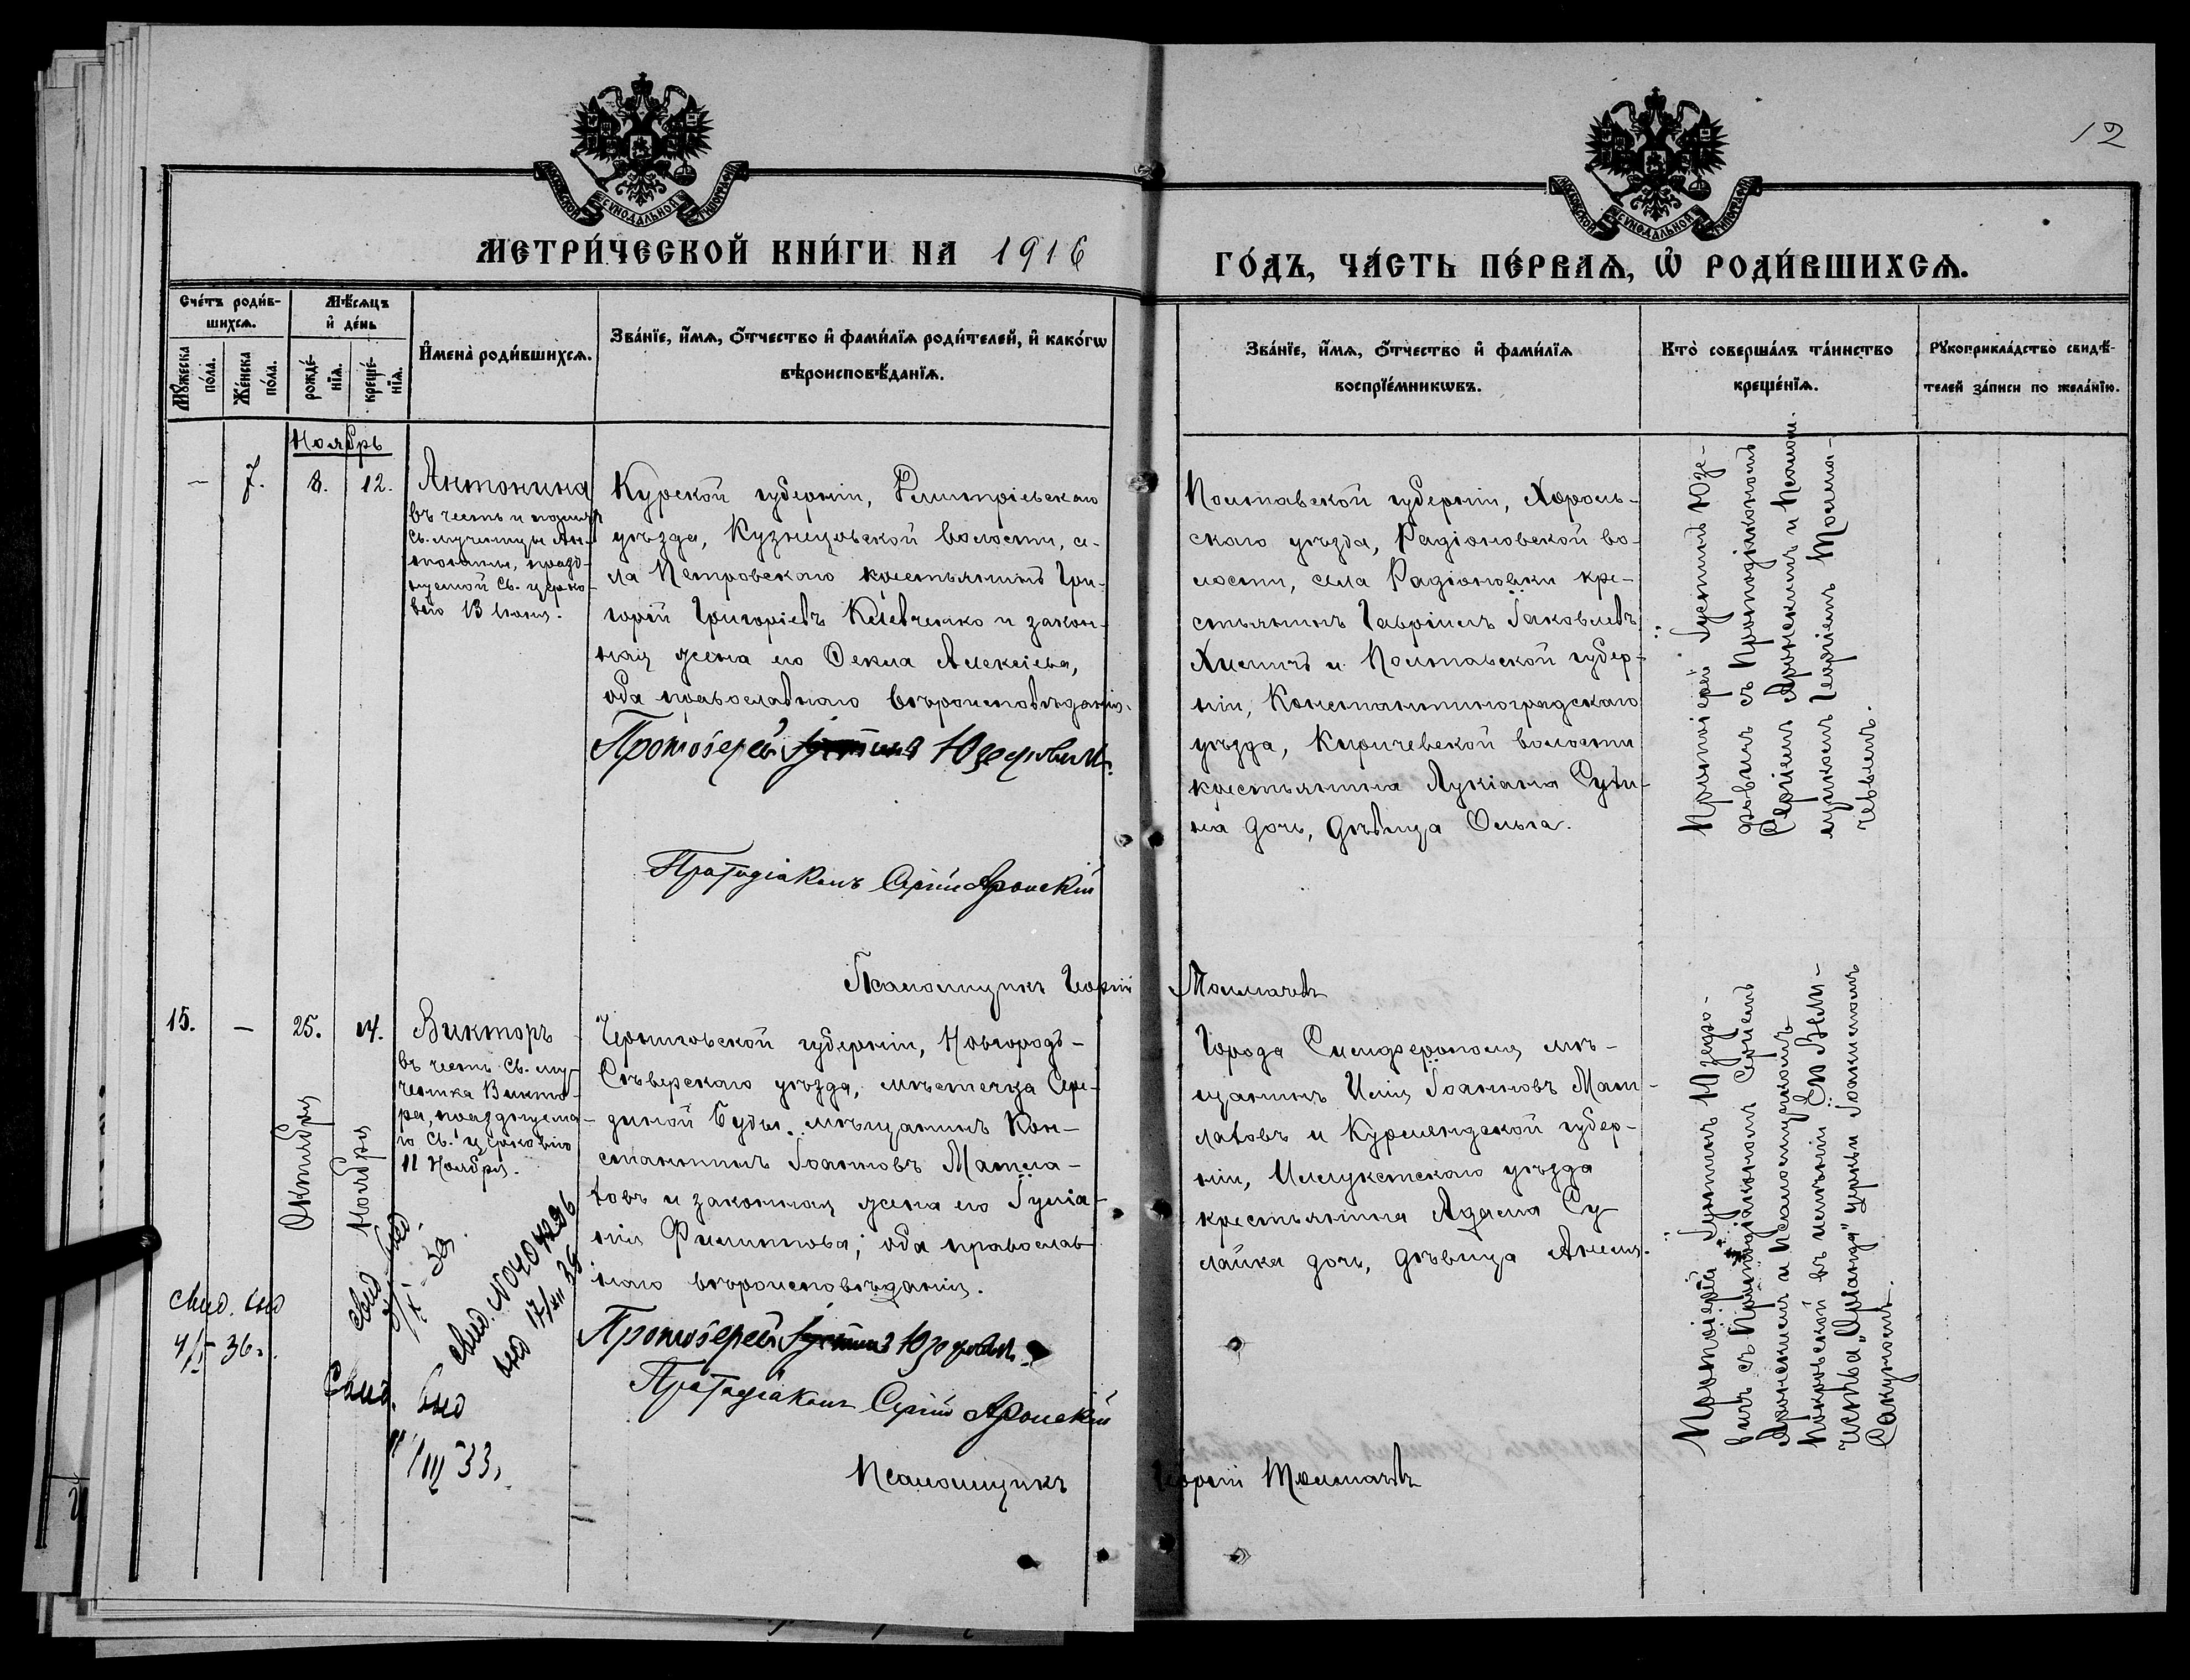 12
МОСКОВСКОЙ СУНОДАЛЬНОЙ ТИПОГРАФІИ
МОСКОВСКОЙ СУНОДАЛЬНОЙ ТИПОГРАФІИ
МЕТРИ́ЧЕСКОЙ КНИ́ГИ НА 1916
ГО́ДЪ, ЧА́СТЬ ПЕ́РВАѦ, Ѡ҆ РОДИ́ВШИХСѦ.
Сче́тъ роди́в-
шихсѧ.
Мꙋ́жеска
по́ла.
Же́нска
по́ла.
Мѣ́сѧцъ
и҆ де́нь
рожде́-
нїѧ.
креще́-
нїѧ.
И҆мена̀ роди́вшихсѧ.
Зва́нїе, и҆́мѧ, ѻ҆́тчество и҆ фами́лїѧ роди́телей, и҆ како́гѡ
вѣроисповѣ́данїѧ.
Зва́нїе, и҆́мѧ, ѻ҆́тчество и҆ фами́лїѧ
воспрїе́мникѡвъ.
Кто̀ соверша́лъ та́инство
креще́нїѧ.
Рꙋкоприкла́дство свидѣ́-
телей за́писи по жела́нїю.
Ноябрь
–
7.
8.
12.
Антонина
въ честь и память
Св. мученицы Ан-
тонины, празд-
нуемой Св. церко-
вію 13 Іюня.
Курской губерніи, Дмитріевскаго
уѣзда, Кузнецовской волости, се-
ла Петровскаго крестьянинъ Гри-
горій Григоріевъ Клевченко и закон-
ная жена его Ѳекла Алексіева,
оба православнаго вѣроисповѣданія.
Протоіерей Іустинъ Юзефовичъ.
Протодіаконъ Сергій Аронскій
Псаломщикъ Георгій Толмачевъ
Полтавской губерніи, Хороль-
скаго уѣзда, Радіоновской во-
лости, села Радіоновки кре-
стьянинъ Гавріилъ Іаковлевъ
и Полтавской губер-
ніи, Константиноградскаго
уѣзда, Киричевской волости
крестьянина Лукіана
дочь, дѣвица Ольга.
Протоіерей Іустинъ Юзе-
фовичъ съ Протодіакономъ
Сергіемъ Аронскимъ и Псалом-
щикомъ Георгіемъ Толма-
чевымъ.
15.
–
25.
14.
Октября
Ноября
Викторъ
въ честь Св. му-
ченика Викто-
ра, празднуема-
го Св. церковію
11 Ноября.
Черниговской губерніи, Новгородъ-
Сѣверскаго уѣзда, мѣстечка Сере-
диной Буды мѣщанинъ Кон-
стантинъ Іоанновъ Матла-
ховъ и законная жена его Іуліа-
нія Филиппова; оба православ-
наго вѣроисповѣданія.
Протоіерей Іустинъ Юзефовичъ
Протодіаконъ Сергій Аронскій
Псаломщикъ Георгій Толмачевъ
Города Симферополя мѣ-
щанинъ Илія Іоанновъ Мат-
лаховъ и Курляндской губер-
ніи, Иллукстскаго уѣзда
крестьянина Адама Су-
лайка дочь, дѣвица Анеля.
Протоіерей Іустинъ Юзефо-
вичъ съ Протодіакономъ Сергіемъ
Аронскимъ и Псаломщикомъ
Покровской въ имѣніи Его Вели-
чества „Оріанда" церкви Іоакимомъ
Сакуномъ.
свид. выд
4/I 36 г.
свид. выд.
свид. №040496
выд 17/XII 38
Свид. выд
11/III 33 г.